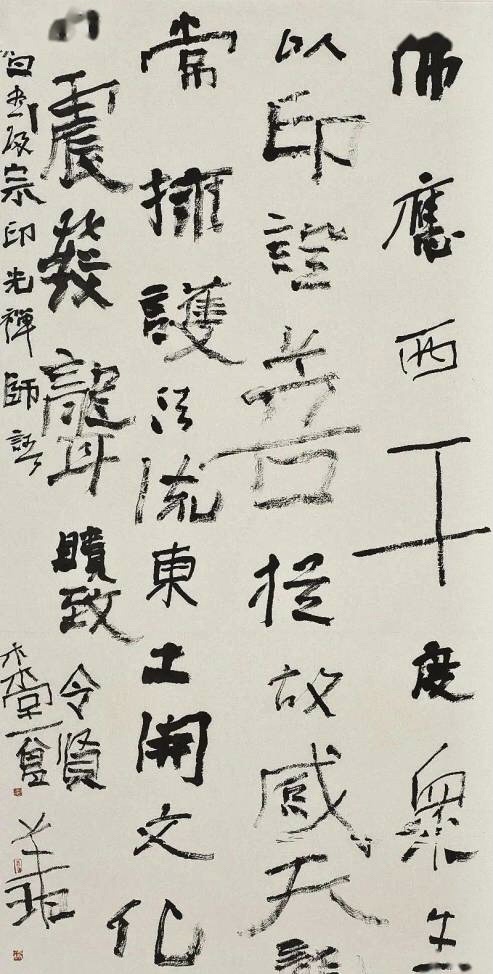 佛應西干度衆生
以印證菩提故感天龍
常擁護法流東土開文化
震發聾瞶致令賢
宗印光禪師語